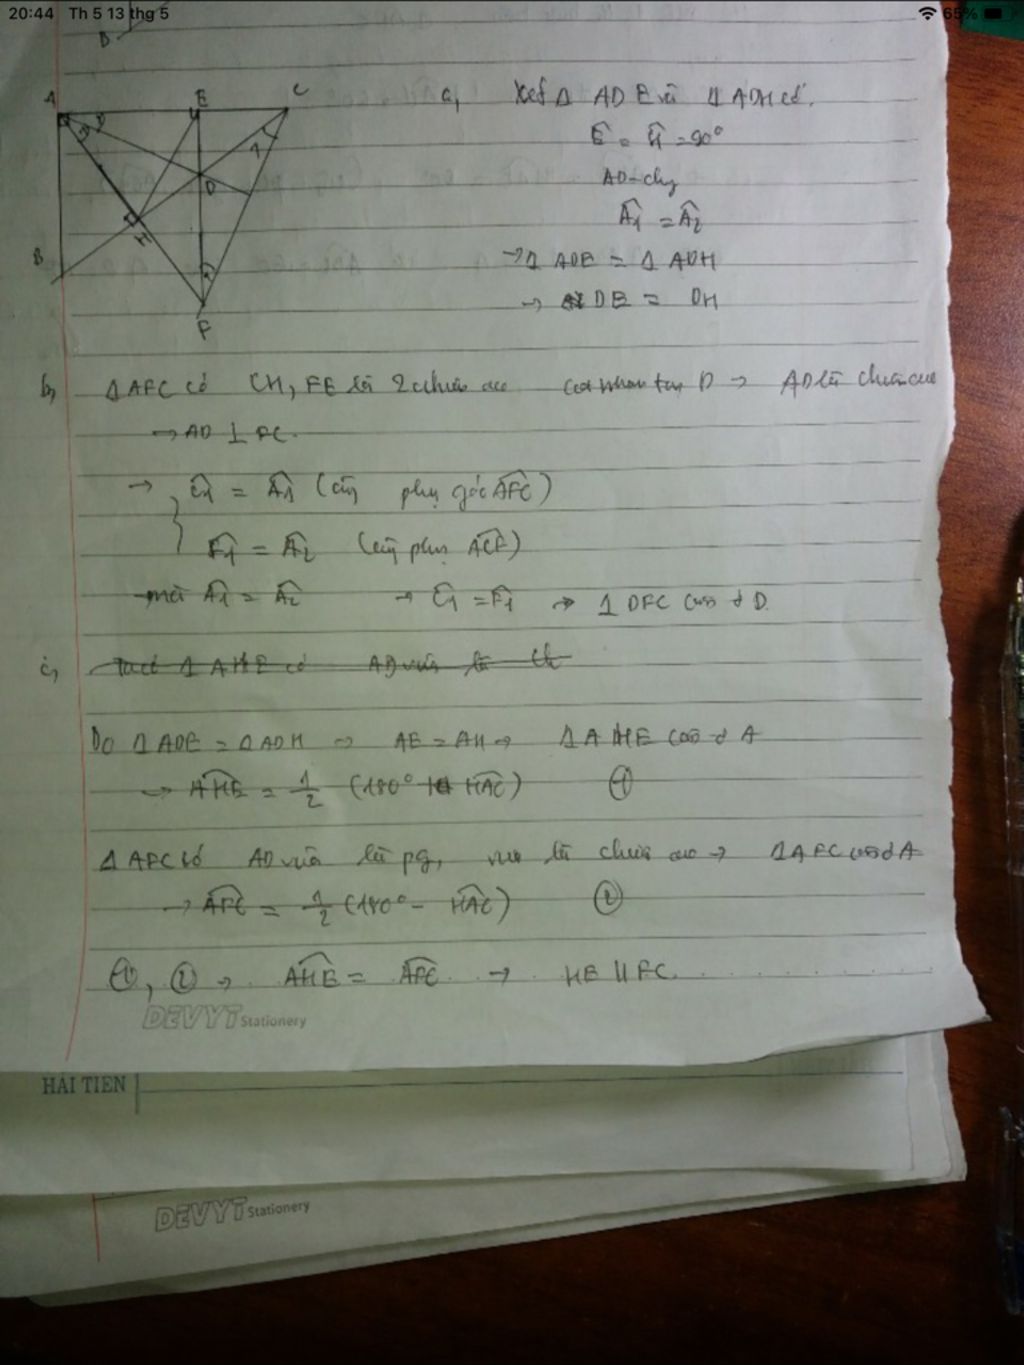 20:44 Th 5 13 thg 5 65%
D
A E C
D
H
B
F
a, Xét Δ ADE và Δ ADH có.
Ê = Ĥ = 90°
AD-chg
Â1 = Â2
→ Δ ADE = Δ ADH
→ DE = DH
b, Δ AFC có CH, FE là 2 chiều cao cắt nhau tại D → AD là chiều cao
→ AD ⊥ FC.
→ Ĉ1 = Â1 (cùg phụ góc AFC)
F̂1 = Â2 (cùg phụ ACF)
→ mà Â1 = Â2 → Ĉ1 = F̂1 → Δ DFC cân ở D.
c, Ta có Δ AHE có AD vừa là ch
Do Δ ADE = Δ ADH → AE = AH → Δ AHE cân ở A
→ AHE = 1/2 (180° - HAC) ①
Δ AFC có AD vừa là pg, vừa là chiều cao → Δ AFC cân ở A
→ AFC = 1/2 (180° - HAC) ②
①, ② → AHE = AFC → HE // FC.
DEVYT Stationery
HẢI TIẾN
DEVYT Stationery